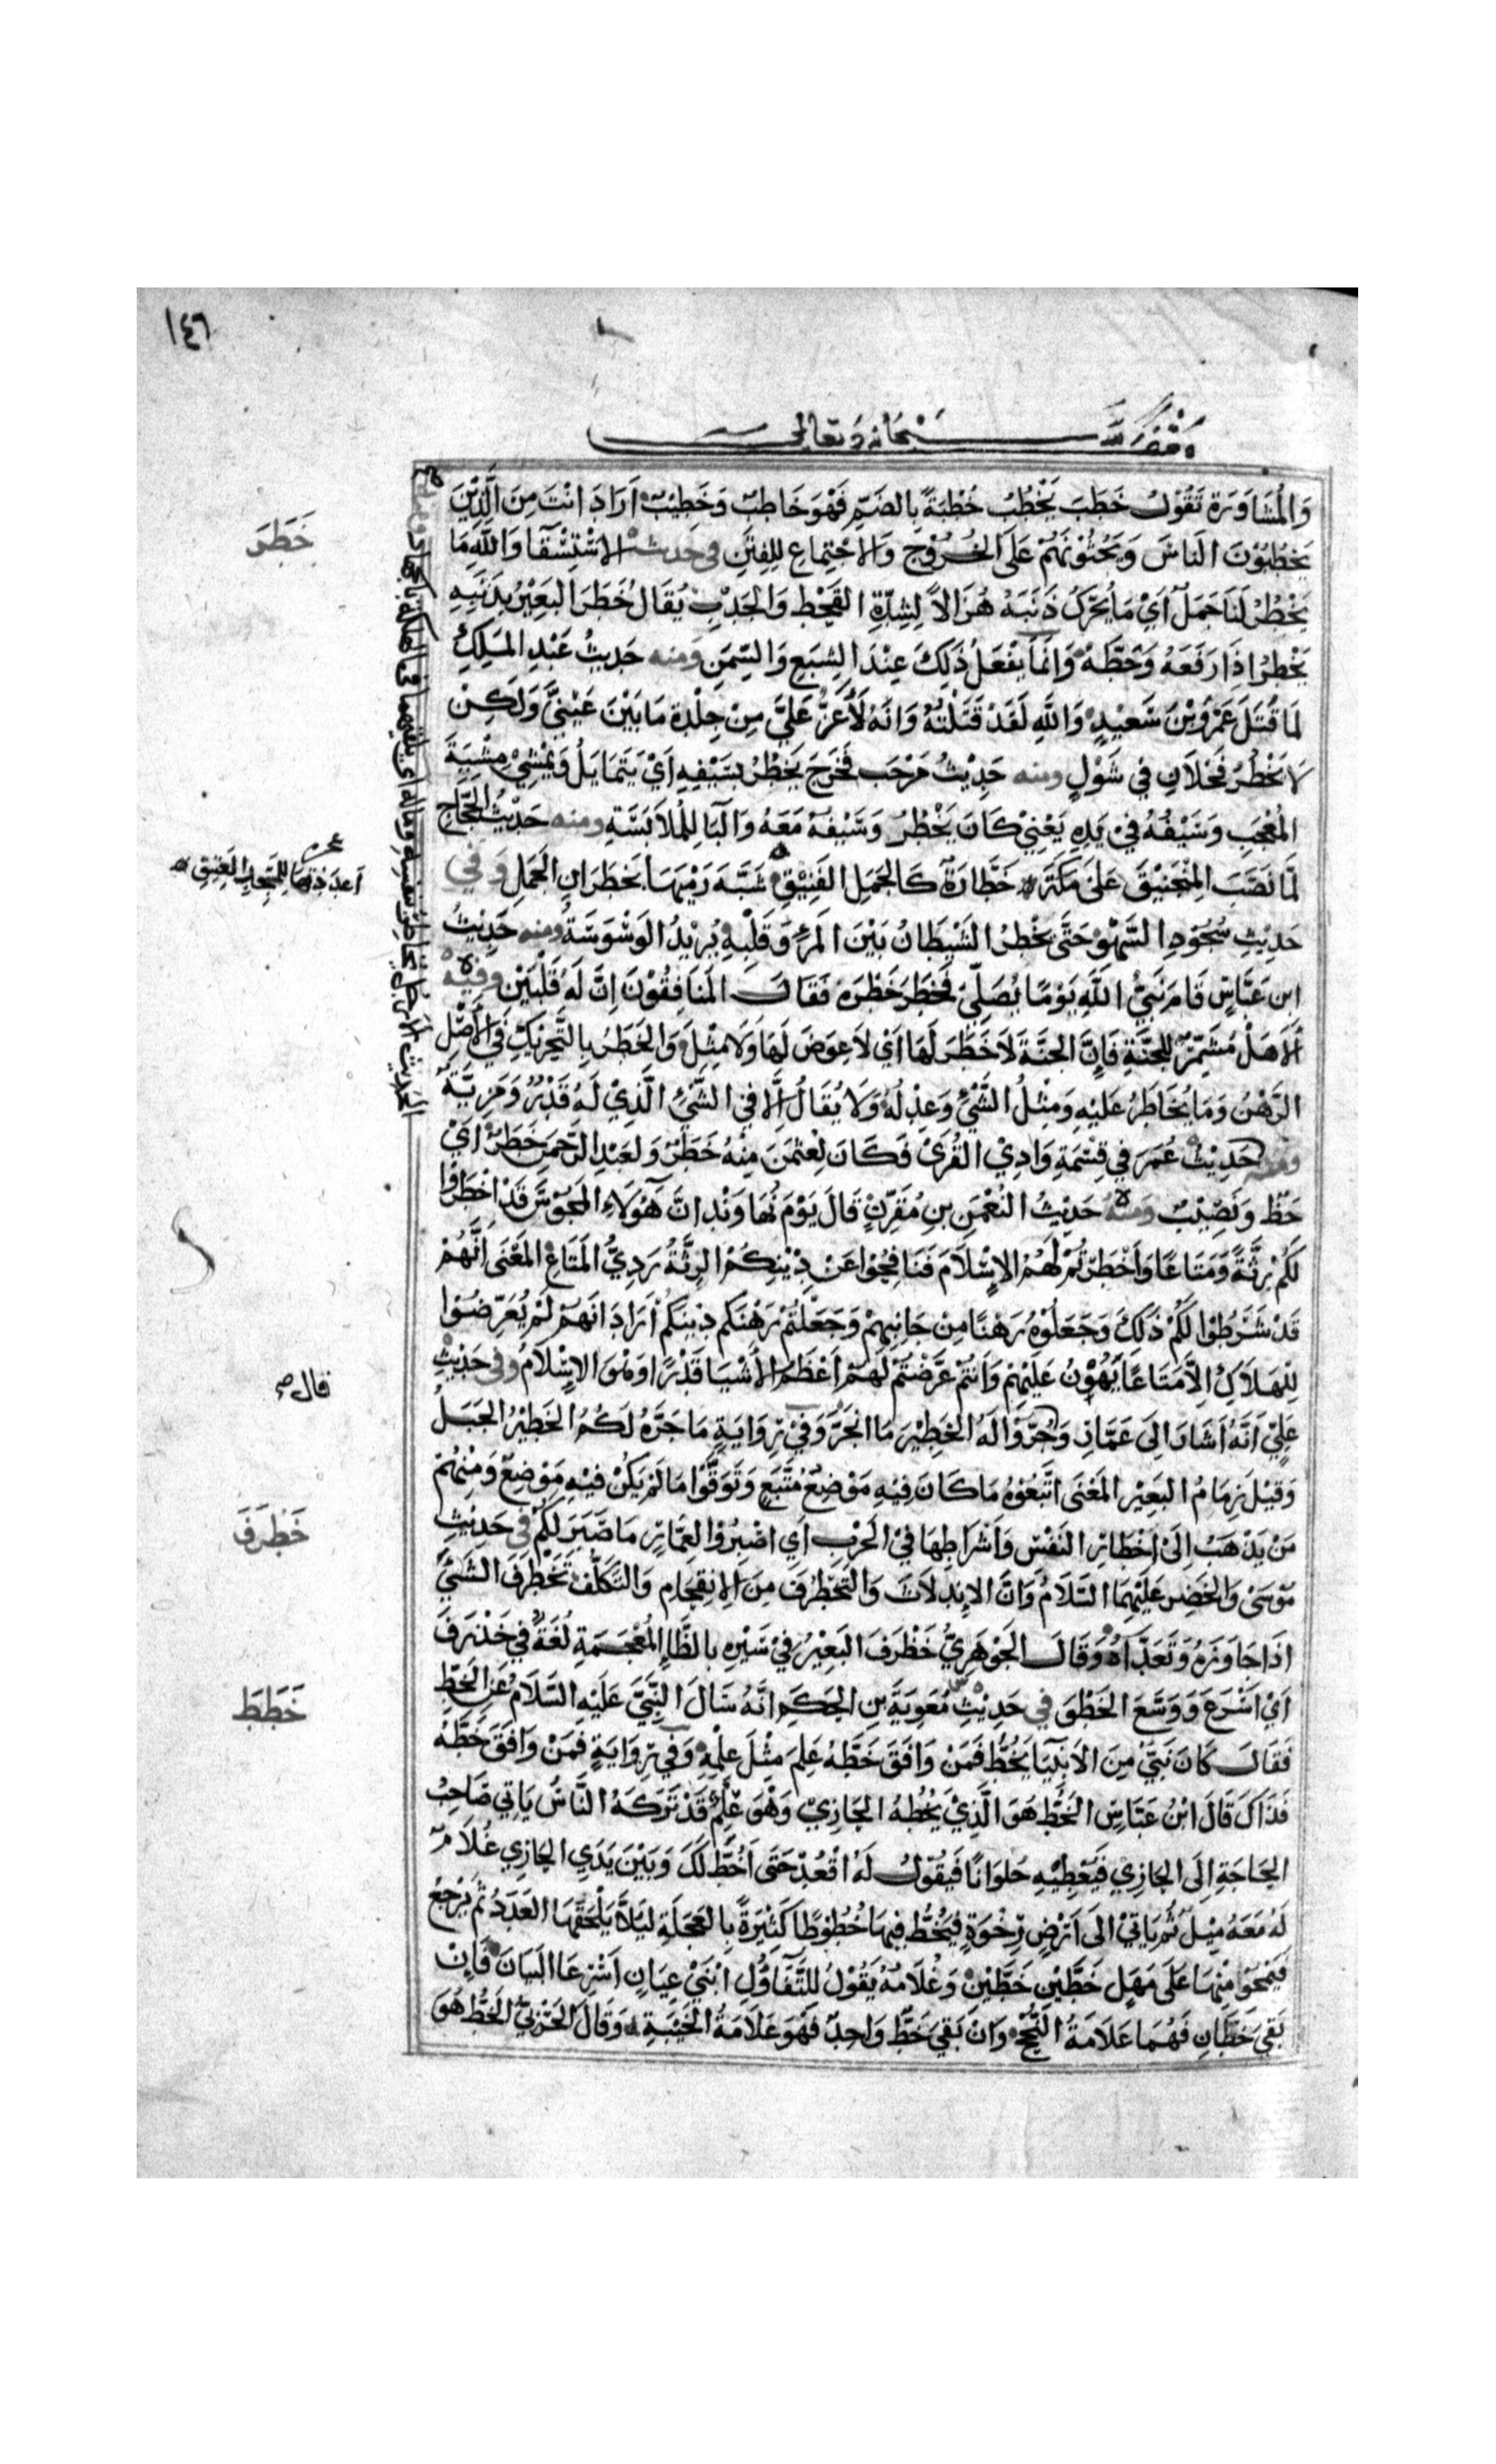 ١٤٦
وقف لله سبحانه وتعالى
وَالْمُشَاوَرَة تَقُوْلُ خَطَبَ يَخْطُبُ خُطْبَةً بِالضَمِّ فَهْوَ خَاطِبٌ وَخَطِيْبٌ اَرَادَ اَنْتَ مِنَ الَّذِيْنَ
يَخْطُبُوْنَ النَاسَ وَيَحُثُّوْنَهُمْ عَلَى الخُرُوْجِ وَالاجْتِمَاعِ لِلفِتَنِ في حَدِيث الاسْتِسْقَا وَاللهِ مَا
خَطَرَ
يَخْطُرُ لَنَا جَمَلٌ اَيْ مَا يُحَرِّكُ ذَنَبَهُ هُزَالاً لِشِدَّةِ القَحْطِ وَالجَدْبِ يُقَالُ خَطَرَ البَعِيْرُ بِذَنَبِهِ
يَخْطِرُ اِذَا رَفَعَهُ وَحَطَّهُ وَاِنَّمَا يَفْعَلُ ذَلِكَ عِنْدَ الشِبَعِ وَالسِّمَنِ ومنه حَدِيثُ عَبْدِ المَلِكِ
لَمَا قَتَلَ عَمْرَو بْنَ سَعِيْدٍ وَاللهِ لَقَدْ قَتَلْتُهُ وَاِنَهُ لَأَعَزُّ عَلَيَّ مِنْ جِلْدَةِ مَا بَيْنَ عَيْنَيَّ وَلَكِنْ
لَا يَخْطُرُ فَحْلَانِ فِي شَوْلٍ ومنه حَدِيْثُ مَرْحَبٍ فَخَرَجَ يَخْطُرُ بِسَيْفِهِ اَيْ يَتَمَايَلُ وَيَمْشِيْ مِشْيَةَ
المُعْجَبِ وَسَيْفُهُ فِيْ يَدِهِ يَعْنِيْ كَانَ يَخْطُرُ وَسَيْفُهُ مَعَهُ وَالبَا لِلْمُلاَبَسَةِ ومنه حَدْيثُ الحَجَّاجِ
لَمَّا نَصَبَ المِنْجَنِيْقَ عَلَى مَكَةَ خَطَّارَةٌ كَالجَمَلِ الفَنِيْقِ شَبَّهَ رَمْيَهَا بِخَطَرَانِ الجَمَلِ وَفِي
اعددتها للمسجد العتيق
حَدِيْثِ سُجُوْدِ السَّهْوِ حَتَّى يَخْطُرَ الشَيْطَانُ بَيْنَ المَرْءِ وَقَلْبِهِ يُرِيْدُ الوَسْوَسَةَ ومنه حَدِيْثُ
ابنِ عَبَّاسٍ قَامَ نَبِيُّ اللهِ يَوْمًا يُصَلِّيْ فَخَطَرَ خَطْرَة فَقَالَ المُنَافِقُوْنَ اِنَّ لَهُ قَلْبَيْنِ وفيه
أَلَا هَلْ مُشَمِّرٌ لِلجَنَّةِ فَاِنَّ الجَنَّةَ لاَ خَطَرَ لَهَا اَيْ لَا عِوَضَ لَهَا وَلاَ مِثْلَ وَالخَطَرُ بِالتَّحْرِيْكِ فِي الاَصْلِ
الرَهْنُ وَمَا يُخَاطَرُ عَلَيْهِ وَمِثْلُ الشَّيْءِ وَعِدْلُهُ وَلَا يُقَالُ اِلَّا فِي الشَّيْءِ الَّذِيْ لَهُ قَدْرٌ وَمَزِيَّة
ومنه حَدِيْثُ عُمَرَ فِي قِسْمَةِ وَادِيْ القُرَى فَكَانَ لِعُثْمٰنَ مِنْهُ خَطَرٌ وَلِعَبْدِ الرَّحْمٰنِ خَطَرٌ اَيْ
حَظٌّ وَنَصِيْبٌ وَمِنْهُ حَدِيْثُ النُعْمٰنِ بنِ مُقَرِّنٍ قَالَ يَوْمَ نُهَاوَنْدَ اِنَّ هٰؤُلَاءِ المَجُوْسَ قَدْ اَخْطَرُوا
لَكُمْ رِثَّةً وَمَتَاعًا وَاَخْطَرْتُمْ لَهُمُ الاِسْلَامَ فَنَافِحُوْا عَنْ دِيْنِكُمْ الرِثَّةُ رَدِيُّ المَتَاعِ المَعْنَى اِنَّهُمْ
قَدْ شَرَطُوْا لَكُمْ ذَلِكَ وَجَعَلُوْهُ رَهْنًا مِنْ جَانِبِهِمْ وَجَعَلْتُمْ رَهْنَكُمْ دِيْنَكُمْ اَرَادَ اَنَهُمْ لَمْ يُعَرِّضُوْا
لِلْهَلَاكِ اِلَّا مَتَاعًا يَهُوْنُ عَلَيْهِمْ وَاَنْتُمْ عَرَّضْتُمْ لَهُمْ اَعْظَمَ الاَشْيَا قَدْرًا وَهْوَ الاِسْلَامُ وفى حَدِيْثِ
قال
عَلِيٍّ اَنَّهُ اَشَارَ اِلَى عَمَّارٍ وَجُرُّوْا لَهُ الخَطِيْرَ مَا انْجَرَّ وَفِيْ رِوَايَةٍ مَا جَرَّهُ لَكُمُ الخَطِيْرُ الحَبْلُ
وَقِيْلَ زِمَامُ البَعِيْرِ المَعْنَى اتَّبَعُوْهُ مَا كَانَ فِيْهِ مَوْضِعٌ مُتَّبَعٌ وَتَوَقَّوْا مَا لَمْ يَكُنْ فِيْهِ مَوْضِعٌ وَمِنْهُمْ
مَنْ يَذْهَبُ اِلَى اِخْطَارِ النَفْسِ وَاَشْرَاطِهَا فِيْ الحَرْبِ اَي اصْبِرُوْا لِعَمَّارٍ مَا صَبَرَ لَكُمْ في حَدِيْثِ
خَظرَفَ
مُوْسَى وَالخَضِرِ عَلَيْهِمَا السَّلَامُ وَاَنَّ الاِنْدِلَاثَ وَالتَّخَطْرُفَ مِنَ الاِنْقِحَامِ وَالتَّكَلُّف تَخَطْرَفَ الشَيْئَ
اِذَا جَاوَزَهُ وَتَعَدَّاهُ وَقَالَ الجَوْهَرِيُّ خَظْرَفَ البَعِيْرُ فِيْ سَيْرِهِ بِالظَّاءِ المُعْجَمَةِ لُغَةٌ فِي خَذْرَفَ
اَيْ اَسْرَعَ وَوَسَّعَ الخَطْوَ في حَدِيْثِ مُعٰوِيَةَ بنِ الحَكَمِ اَنَّهُ سَالَ النَّبِيَّ عَلَيْهِ السَّلَامُ عَنِ الخَطِّ
خَطَطَ
فَقَالَ كَانَ نَبِيٌّ مِنَ الاَنْبِيَا يَخُطُّ فَمَنْ وَافَقَ خَطَّهُ عَلِمَ مِثْلَ عِلْمِهِ وَفي رِوَايَةٍ فَمَنْ وَافَقَ خَطَّهُ
فَذَاكَ قَالَ ابْنُ عَبَّاسٍ الخَطُّ هُوَ الَّذِيْ يَخُطُّهُ الحَازِيْ وَهْوَ عِلْمٌ قَدْ تَرَكَهُ النَّاسُ يَاتِي صَاحِبُ
الحَاجَةِ اِلَى الحَازِي فَيُعْطِيْهِ حُلْوَانًا فَيَقُوْلُ لَهُ اقْعُدْ حَتَى اَخُطَّ لَكَ وَبَيْنَ يَدَيِ الحَازِي غُلَامٌ
لَهُ مَعَهُ مِيْلٌ ثُمَّ يَاتِيْ اِلَى اَرْضٍ رِخْوَةٍ فَيَخُطُّ فِيْهَا خُطُوْطًا كَثِيْرَةً بِالعَجَلَةِ لِيَلَّا يَلْحَقَهَا العَدَدُ ثُمَّ يَرْجِعُ
فَيَمْحُوْ مِنْهَا عَلَى مَهَلٍ خَطَّيْنِ خَطَّيْنِ وَغُلَامُهُ يَقُوْلُ لِلتَّفَاؤُلِ ابْنَيْ عِيَانٍ اَسْرِعَا البَيَانَ فَاِنْ
بَقِيَ خَطَّانِ فَهُمَا عَلَامَةُ النُّجْحِ وَاِنْ بَقِيَ خَطٌّ وَاحِدٌ فَهْوَ عَلَامَةُ الخَيْبَةِ وَقَالَ الحَرْبِيُّ الخَطُّ هُوَ